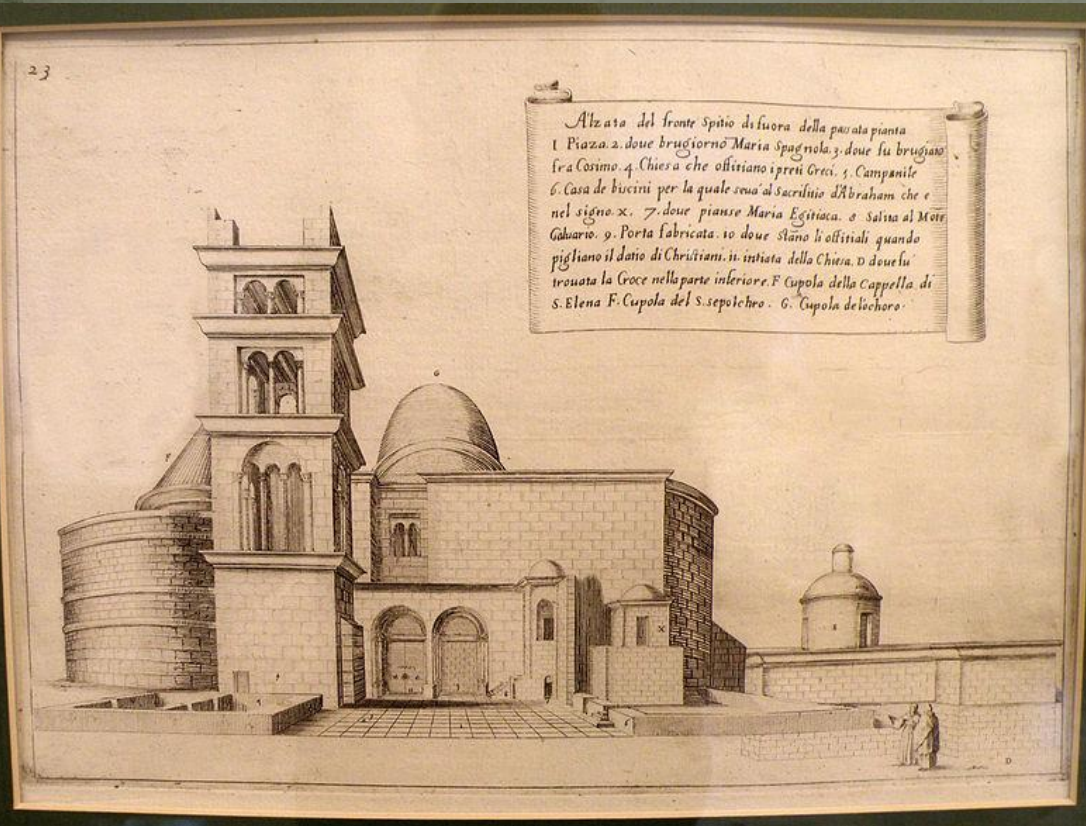 23
Alzata del fronte Spitio di fuora della passata pianta
1 Piaza. 2. doue brugiorno Maria Spagnola. 3. doue fu brugiato
fra Cosimo. 4. Chiesa che offitiano i preti Greci. 5. Campanile
6. Casa de biscini per la quale seua al Sacrifitio d'Abraham che e
nel signo. X. 7. doue pianse Maria Egitiaca. 8 Salita al Mote
Caluario. 9. Porta fabricata. 10 doue stano li offitiali quando
pigliano il datio di Christiani. 11. intiata della Chiesa. D doue fu
trouata la Croce nella parte inferiore. F Cupola della Cappella di
S. Elena F. Cupola del S. sepolchro. G. Cupola de lochoro.
G
F
X
D